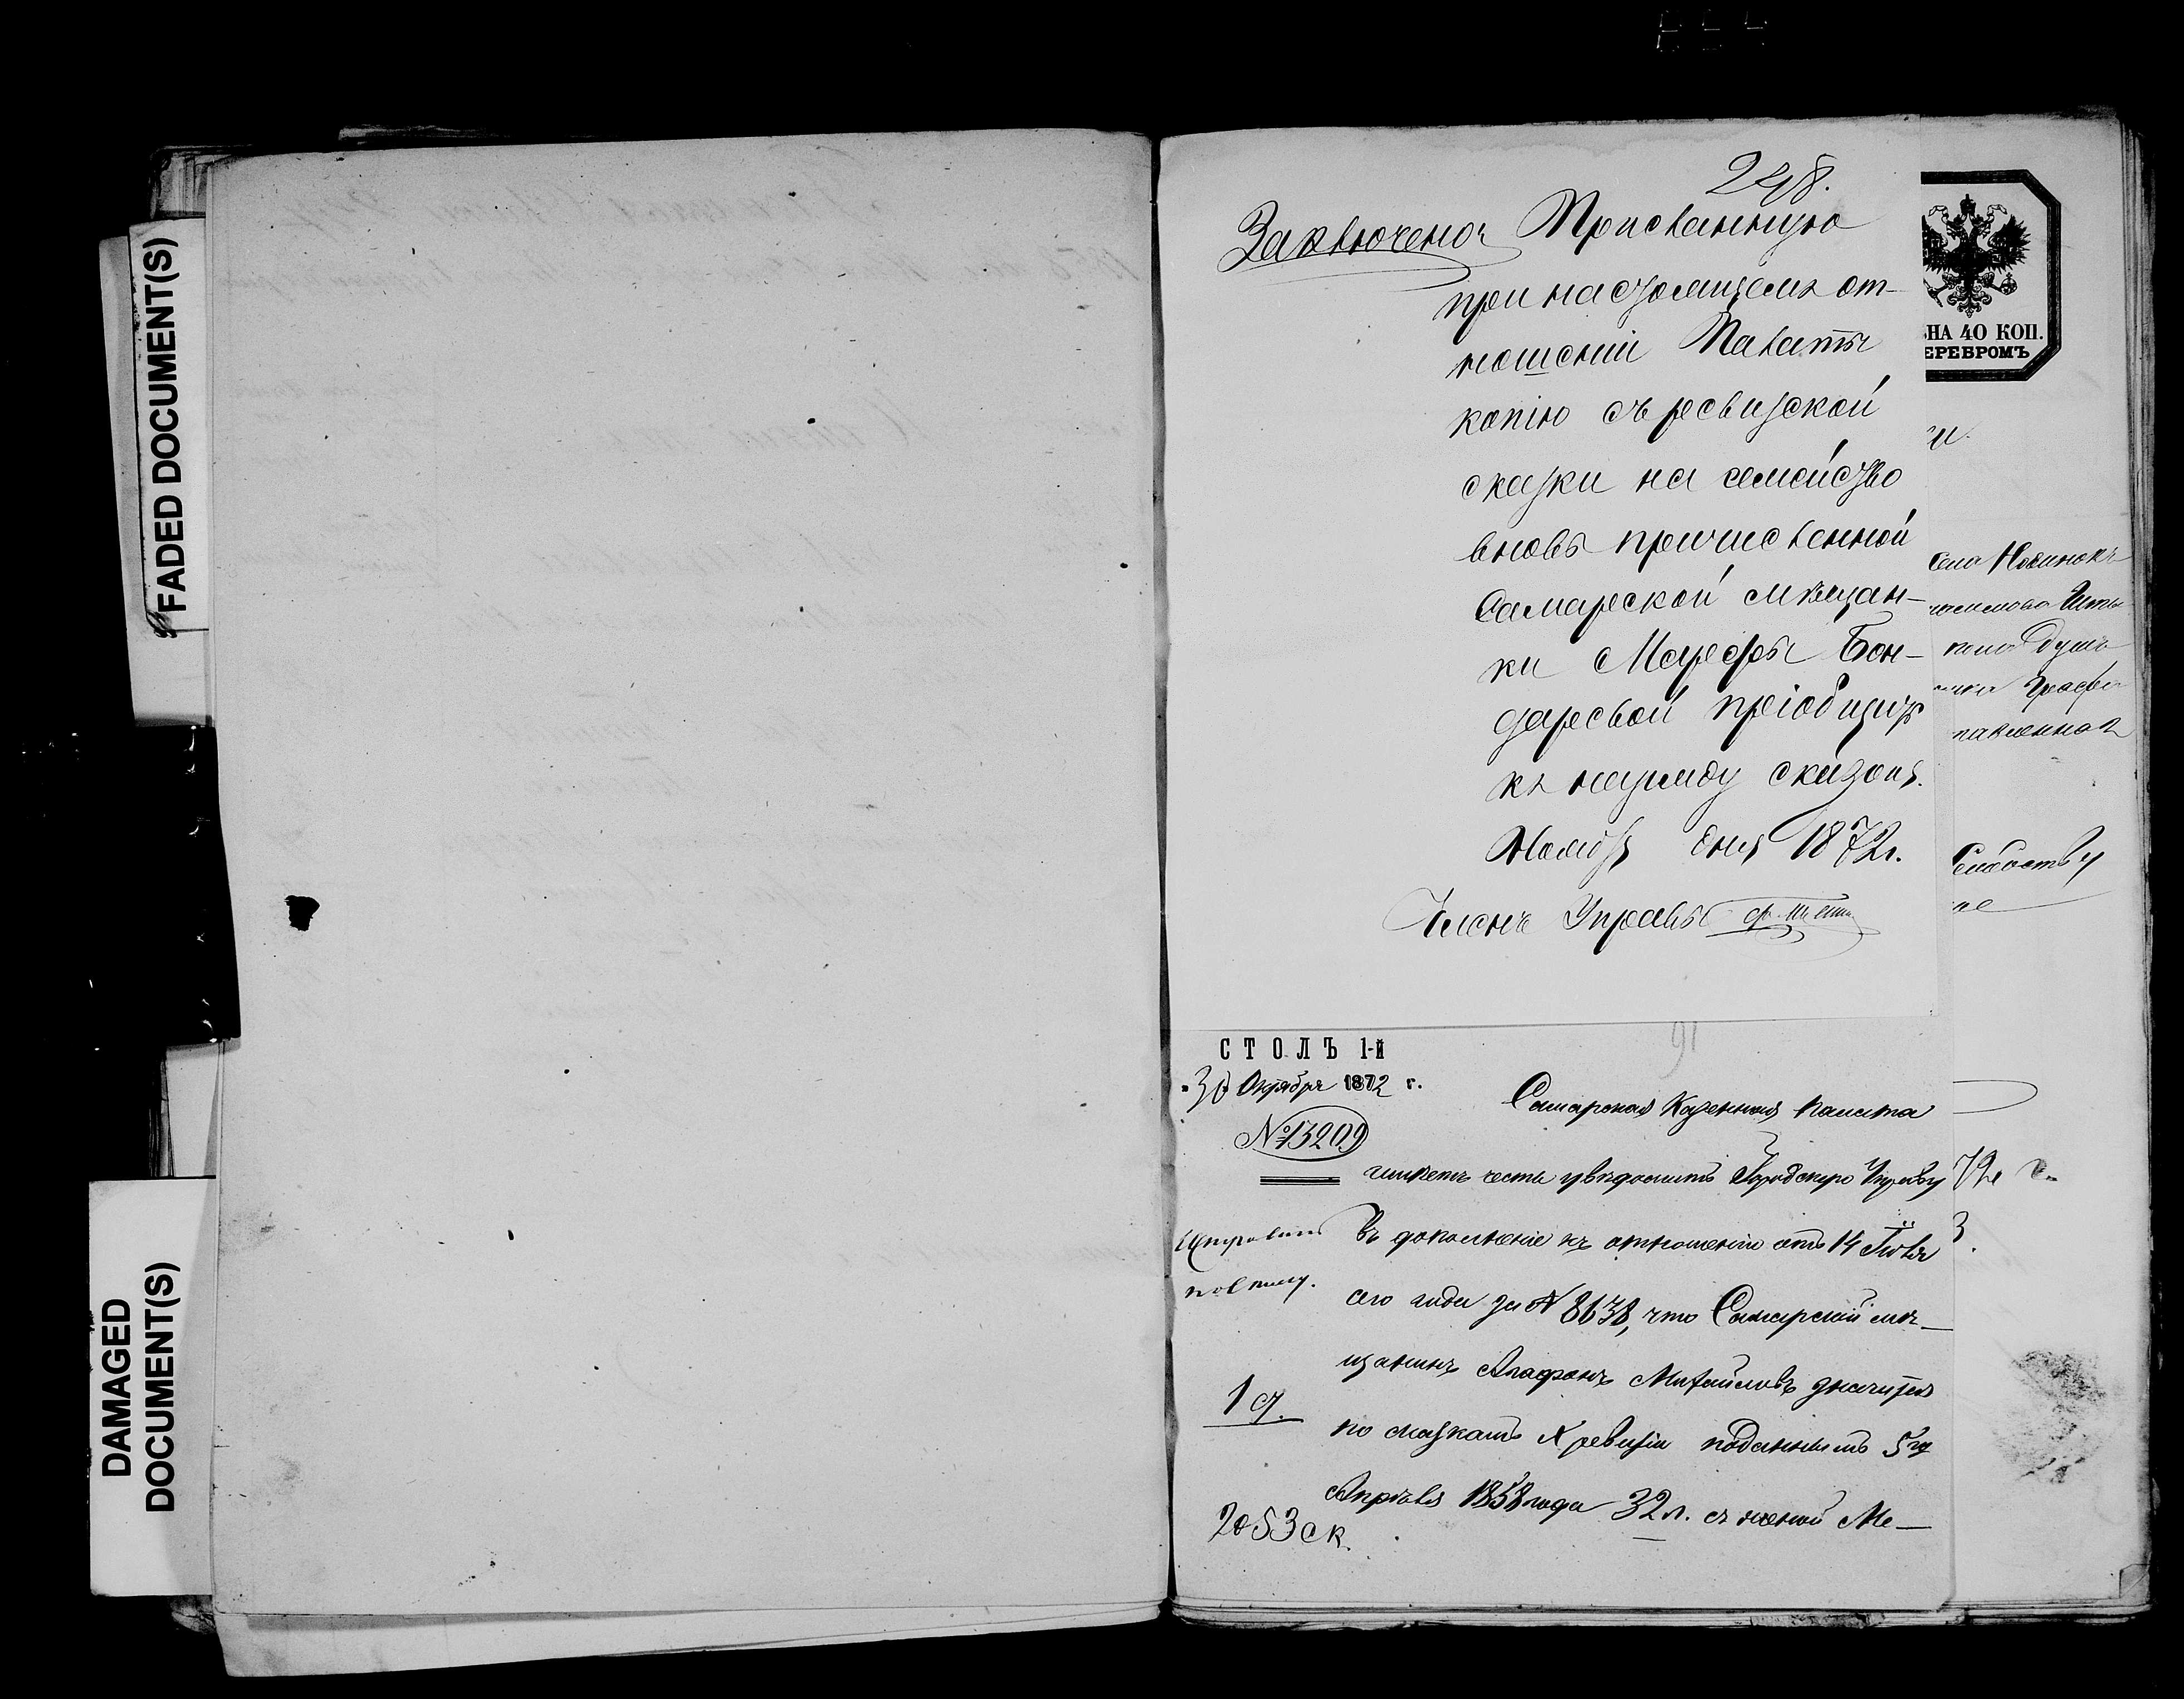 FADED DOCUMENT(S)
DAMAGED
DOCUMENT(S)
248.
Заключено: Присланную
при настоящемъ от-
ношеніи Палаты
копію съ ревизской
сказки на семейство
вновь причисленной
Самарской мѣщан-
ки Марфы Бон-
даревой пріобщить
къ наряду сказокъ.
Ноября дня 1872 г.
Членъ Управы
НА 40 КОП.
ЕРЕБРОМЪ
душъ
72 г.
3.
91
СТОЛЪ 1-й
"30" Октября 1872 г.
№ 13209
1 ч.
2053 ск.
Самарская Казенная Палата
имѣетъ честь увѣдомить Городскую Управу
въ дополненіе къ отношенію отъ 14 Іюля
сего года за № 8638, что Самарскій мѣ-
щанинъ Агафонъ Михайловъ значится
по сказкамъ X ревизіи поданнымъ 5го
Апрѣля 1858 года 32 л. съ женой Ма-